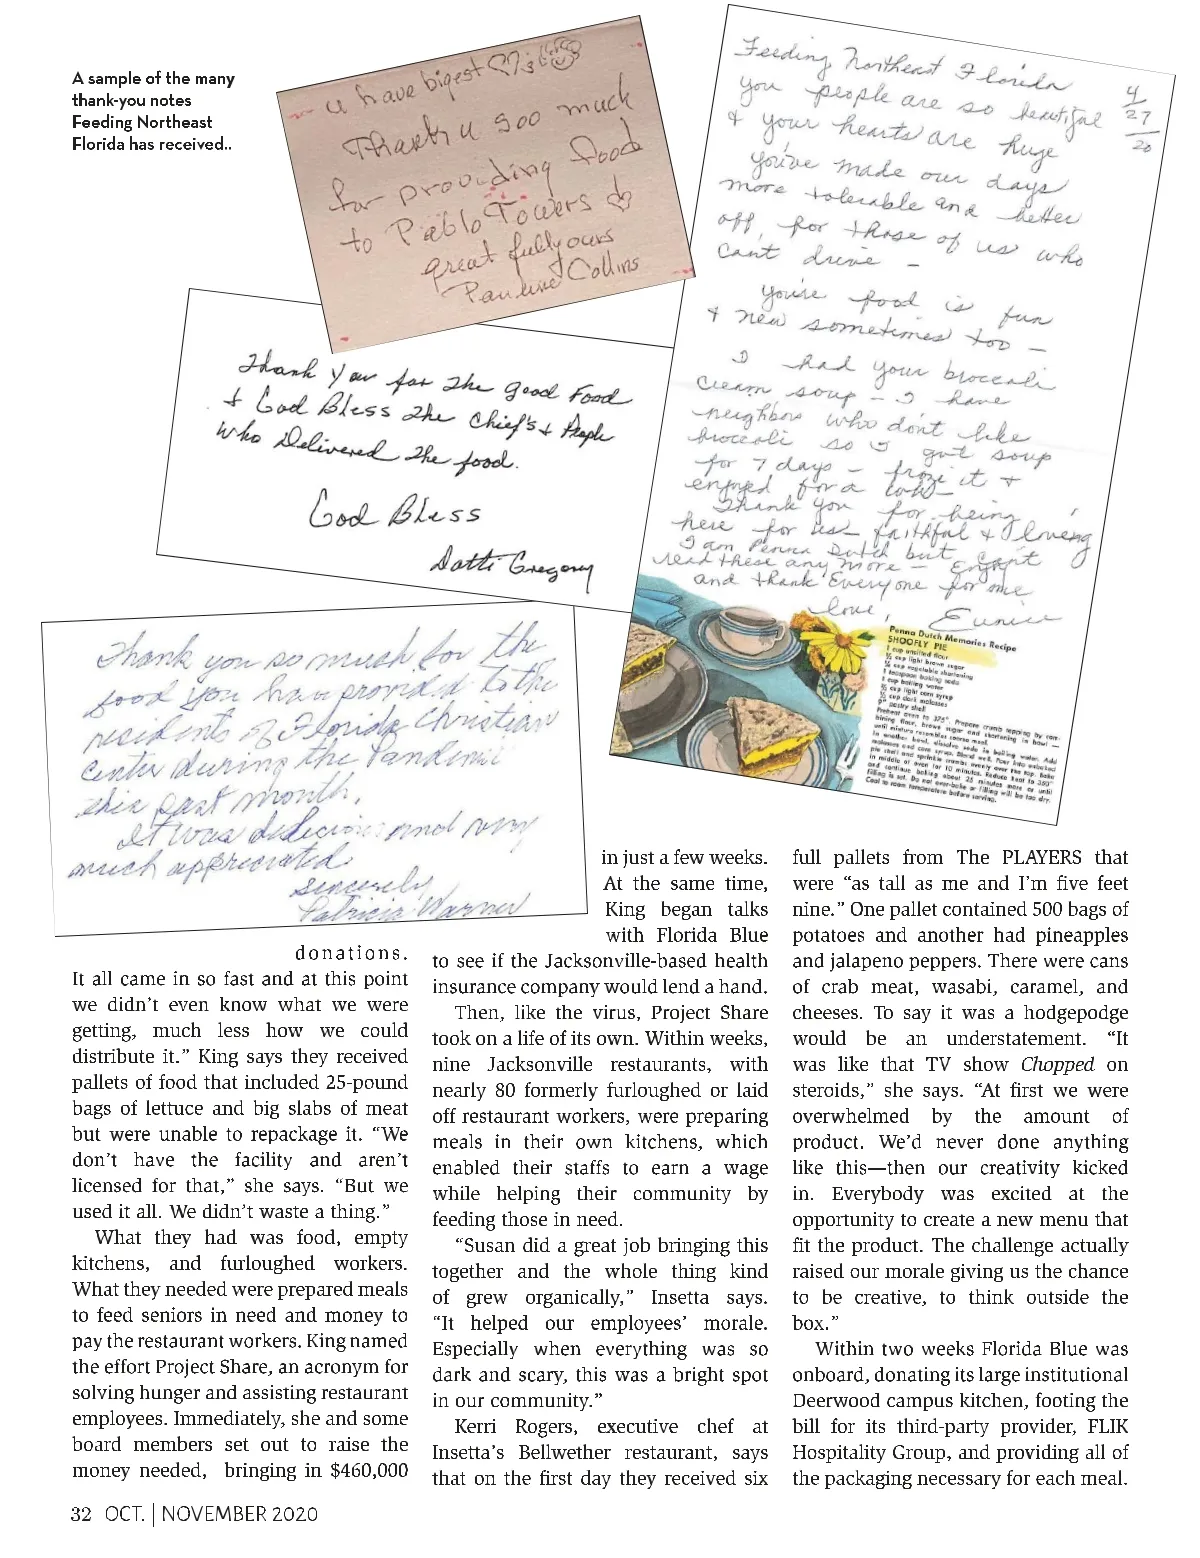 A sample of the many
thank-you notes
Feeding Northeast
Florida has received..
u have bigest
Thank u soo much
for providing food
to Pablo Towers
great fully ours
Pauline Collins
Feeding Northeast Florida
4/27/20
you people are so beautiful
& your hearts are huge
You've made our days
more tolerable and better
off, for those of us who
cant drive –
You're food is fun
& new sometimes too –
I had your broccoli
cream soup – I have
neighbors who don't like
broccoli so I got soup
for 7 days – froze it &
enjoyed for a
Thank You for being
here for us – faithful & loving
I am Penna Dutch but can't
read these any more – Enjoy
and thank Everyone for me
love, Eunice
Penna Dutch Memories Recipe
SHOOFLY PIE
1 cup unsifted flour
½ cup light brown sugar
¼ cup vegetable shortening
1 teaspoon baking soda
1 cup boiling water
½ cup light corn syrup
½ cup dark molasses
9" pastry shell
Preheat oven to 375°. Prepare crumb topping by com-
bining flour, brown sugar and shortening in bowl —
until mixture resembles coarse meal.
In another bowl, dissolve soda in boiling water. Add
molasses and corn syrup. Blend well. Pour into unbaked
pie shell and sprinkle crumbs evenly over the top. Bake
in middle of oven for 10 minutes. Reduce heat to 350°
and continue baking about 25 minutes more or until
filling is set. Do not over-bake or filling will be too dry.
Cool to room temperature before serving.
Thank You for The good Food
& God Bless The Chief's & People
who Delivered The food.
God Bless
Gregory
Thank you so much for the
food you have provided to the
residents of Florida Christian
Center during the Pandemic
this past month.
It was delicious and very
much appreciated
Sincerely,
Patricia Warner
donations.
It all came in so fast and at this point
we didn't even know what we were
getting, much less how we could
distribute it." King says they received
pallets of food that included 25-pound
bags of lettuce and big slabs of meat
but were unable to repackage it. "We
don't have the facility and aren't
licensed for that," she says. "But we
used it all. We didn't waste a thing."
What they had was food, empty
kitchens, and furloughed workers.
What they needed were prepared meals
to feed seniors in need and money to
pay the restaurant workers. King named
the effort Project Share, an acronym for
solving hunger and assisting restaurant
employees. Immediately, she and some
board members set out to raise the
money needed, bringing in $460,000
in just a few weeks.
At the same time,
King began talks
with Florida Blue
to see if the Jacksonville-based health
insurance company would lend a hand.
Then, like the virus, Project Share
took on a life of its own. Within weeks,
nine Jacksonville restaurants, with
nearly 80 formerly furloughed or laid
off restaurant workers, were preparing
meals in their own kitchens, which
enabled their staffs to earn a wage
while helping their community by
feeding those in need.
"Susan did a great job bringing this
together and the whole thing kind
of grew organically," Insetta says.
"It helped our employees' morale.
Especially when everything was so
dark and scary, this was a bright spot
in our community."
Kerri Rogers, executive chef at
Insetta's Bellwether restaurant, says
that on the first day they received six
full pallets from The PLAYERS that
were "as tall as me and I'm five feet
nine." One pallet contained 500 bags of
potatoes and another had pineapples
and jalapeno peppers. There were cans
of crab meat, wasabi, caramel, and
cheeses. To say it was a hodgepodge
would be an understatement. "It
was like that TV show Chopped on
steroids," she says. "At first we were
overwhelmed by the amount of
product. We'd never done anything
like this—then our creativity kicked
in. Everybody was excited at the
opportunity to create a new menu that
fit the product. The challenge actually
raised our morale giving us the chance
to be creative, to think outside the
box."
Within two weeks Florida Blue was
onboard, donating its large institutional
Deerwood campus kitchen, footing the
bill for its third-party provider, FLIK
Hospitality Group, and providing all of
the packaging necessary for each meal.
32 OCT. | NOVEMBER 2020